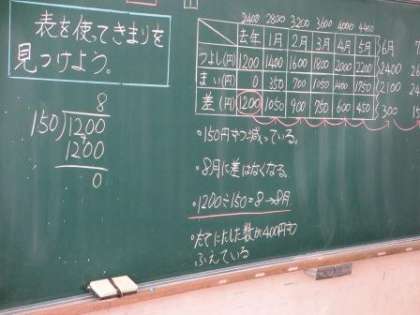 表を使ってきまりを
見つけよう。
8
150)1200
1200
0
2400 2800 3200 3600 4000 4400
去年 1月 2月 3月 4月 5月 6月
つよし(円) 1200 1400 1600 1800 2000 2200 2400
まい(円) 0 350 700 1050 1400 1750 2100
差(円) 1200 1050 900 750 600 450 300
・150円ずつ減っている。
・8月に差はなくなる。
・1200÷150=8→8月
・たてにたした数が400円ずつ
ふえている